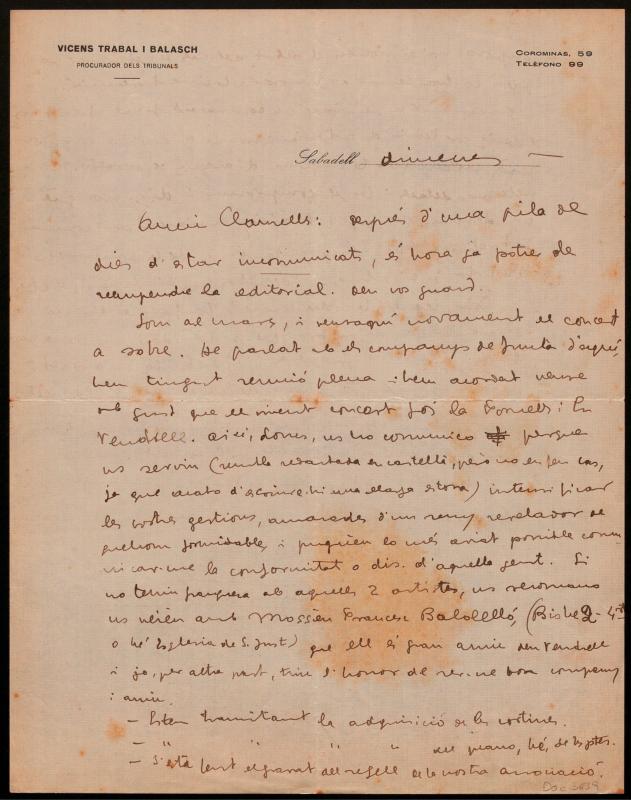 VICENS TRABAL I BALASCH
PROCURADOR DELS TRIBUNALS
COROMINAS, 59
TELÈFONO 99
Sabadell dimecres
Amic Clarnells: després d'una pila de
dies d'estar incomunicats, és hora ja potser de
rempendre la editorial. Deu vos guard.
Som al març, i venraquí novament el concert
a sobre. He parlat ab els companys de Junta d'aquí,
hem tingut reunió plena i hem acordat veure
amb gust que el vinent concert fos la Fornells i En
Vendrell. Així, doncs, us ho comunico perque
us servim ( en castellà, però no en feu cas,
ja que acabo d'escriure-hi una estona) intensificar
les vostres gestions, amarades d'un seny revelador de
quelcom formidable, i pugueu lo més aviat possible comu-
nicar-me la conformitat o dis. d'aquella gent. Si
no teniu franquesa ab aquells 2 artistes, us recomano
us veieu amb Mossèn Francesc Baldelló, (Bisbe 2 - 4rt
o bé Església de S. Just) que ell és gran amic den Vendrell
i jo, per altra part, tinc l'honor de ser-ne bon company
i amic.
- Estem tramitant la adquisició de les cortines.
- " " " " del piano, bé, de les potes.
- S'està fent el gravat del segell de la nostra associació.
Doc 3039